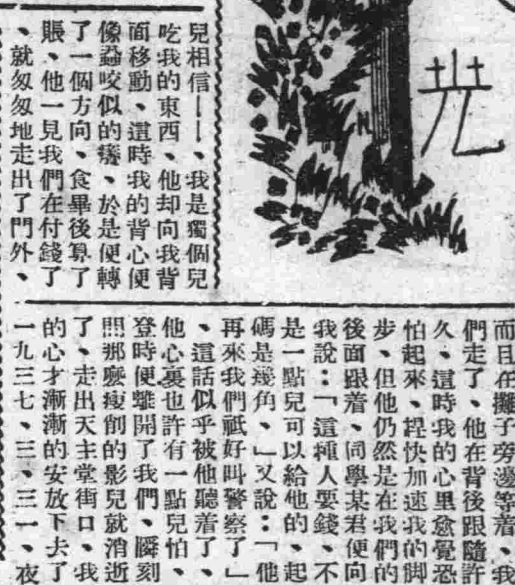 光
兒相信——、我是獨個兒
吃我的東西、他却向我背
面移動、這時我的背心便
像蝨咬似的癢、於是便轉
了一個方向、食畢後算了
賬、他一見我們在付錢了
、就匆匆地走出了門外、
而且在攤子旁邊等着、我
們走了、他在背後跟隨許
久、這時我的心里愈覺恐
怕起來、捏快加速我的脚
步、但他仍然是在我們的
後面跟着、同學某君便向
我說：「這種人要錢、不
是一點兒可以給他的、起
碼是幾角、」又說：「他
再來我們祇好叫警察了」
、這話似乎被他聽着了、
他心裏也許有一點兒怕、
登時便離開了我們、瞬刻
照那麽瘦削的影兒就消逝
了、走出天主堂街口、我
的心才漸漸的安放下去了
一九三七、三、三一、夜